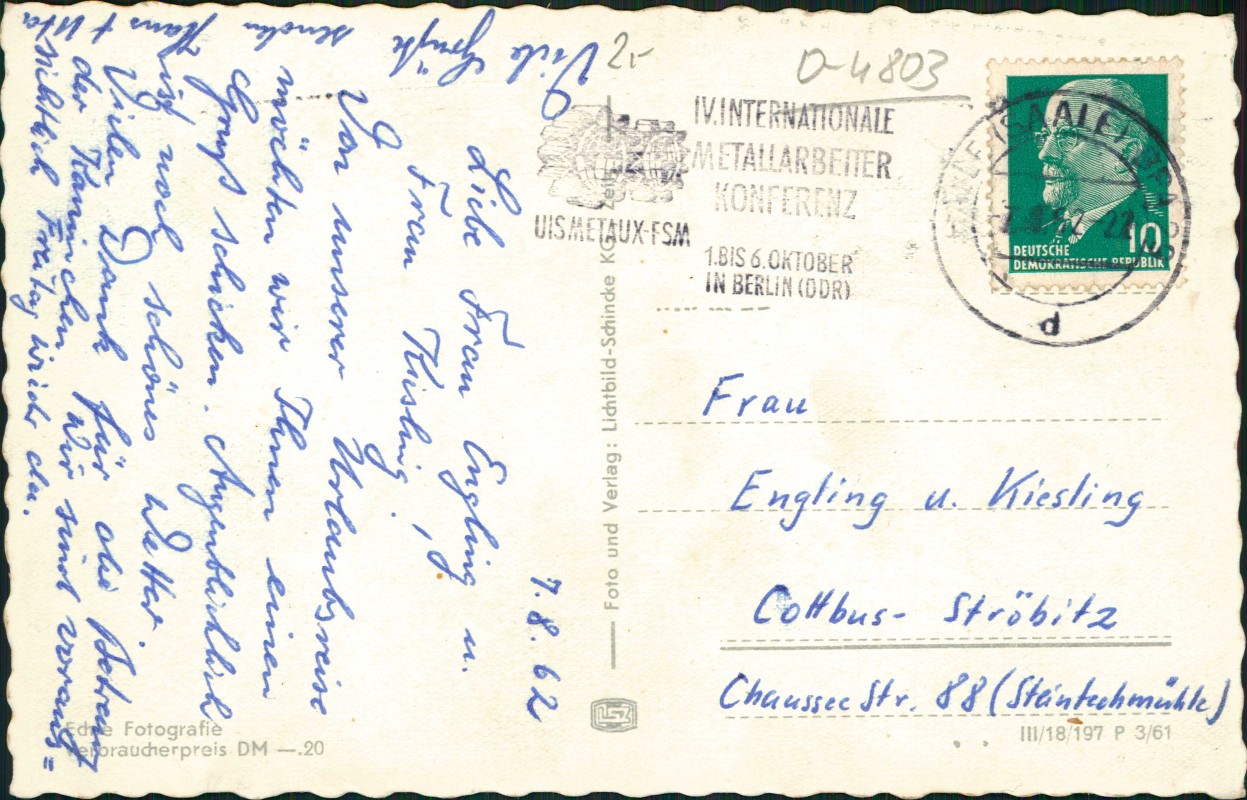 7.8.62
Liebe Frau Engling u.
Frau Kisling,
Von unserer Urlaubsreise
möchten wir Ihnen einen
Gruß schicken. Augenblicklich
ist noch schönes Wetter.
Vielen Dank für die Betreuung
der Kaninchen. Wir sind voraus=
sichtlich Freitag wieder da.
Viele Grüße
senden
Hans + Uta
2,-
O-4803
IV. INTERNATIONALE
METALLARBEITER
KONFERENZ
UISMETAUX-FSM
1. BIS 6. OKTOBER
IN BERLIN (DDR)
10
DEUTSCHE
DEMOKRATISCHE REPUBLIK
(SAALE)
62
d
Foto und Verlag: Lichtbild-Schincke KG
Frau
Engling u. Kiesling
Cottbus- Ströbitz
Chaussee Str. 88 (Steinteichmühle)
Echte Fotografie
Verbraucherpreis DM —.20
III/18/197 P 3/61